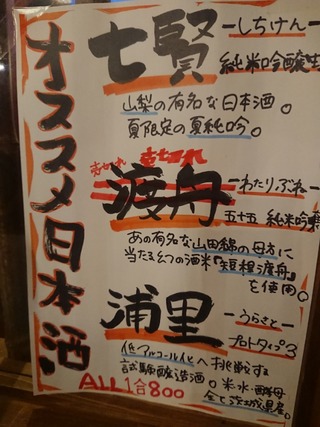 オススメ日本酒
七賢
ーしちけんー
純米吟醸生
山梨の有名な日本酒。
夏限定の夏純吟。
売り切れ
渡舟
ーわたりぶねー
五十五 純米吟醸
あの有名な山田錦の母方に
当たる幻の酒米『短稈渡舟』
を使用。
浦里
ーうらさとー
プロトタイプ3
低アルコール化へ挑戦する
試験醸造酒。米・水・酵母
全て茨城県産。
ALL1合800